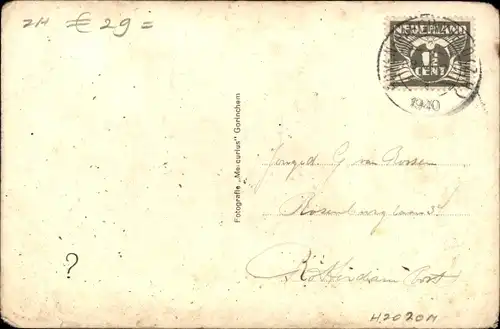 ZH € 29 =
NEDERLAND
1½
CENT
1940
Fotografie „Mercurius" Gorinchem
Jonged G van Rossem
Rosenburglaan 3
Rotterdam Oost
?
H2020M